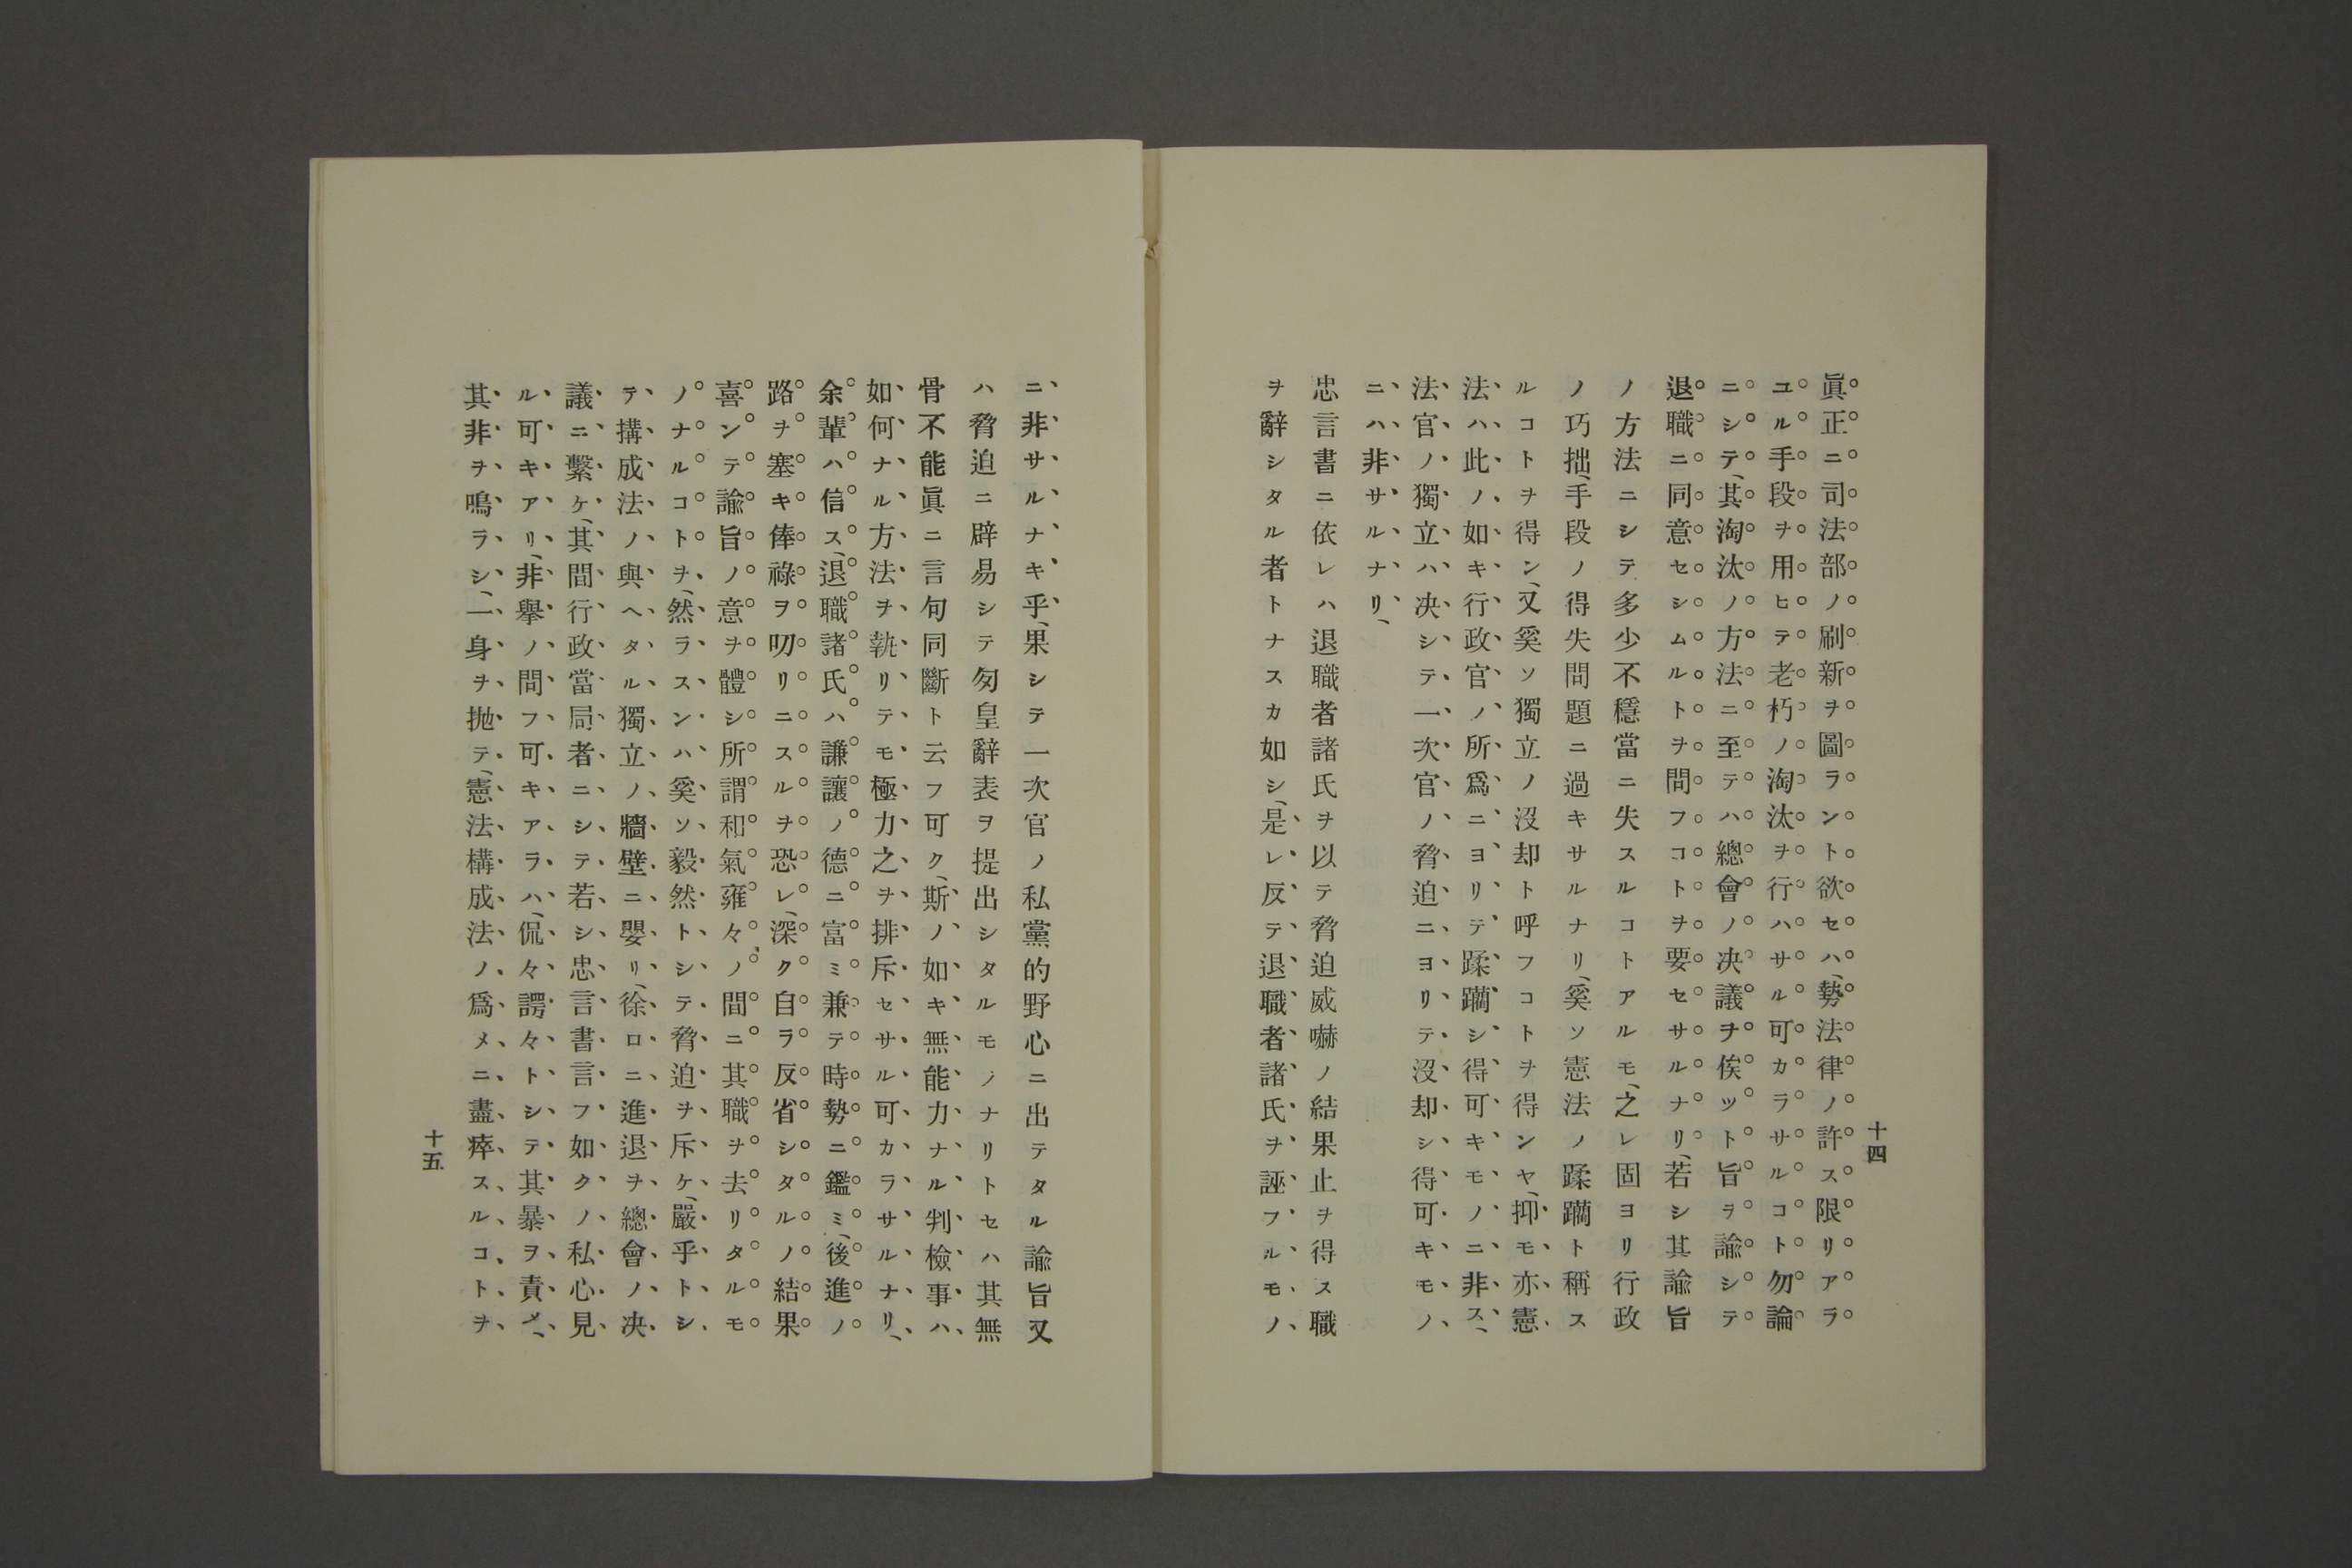 十四
眞正ニ司法部ノ刷新ヲ圖ラント欲セハ、勢法律ノ許ス限リアラ
ユル手段ヲ用ヒテ老朽ノ淘汰ヲ行ハサル可カラサルコト勿論
ニシテ、其淘汰ノ方法ニ至テハ總會ノ决議ヲ俟ツト旨ヲ諭シテ
退職ニ同意セシムルトヲ問フコトヲ要セサルナリ、若シ其諭旨
ノ方法ニシテ多少不穩當ニ失スルコトアルモ、之レ固ヨリ行政
ノ巧拙、手段ノ得失問題ニ過キサルナリ、奚ソ憲法ノ蹂躪ト稱ス
ルコトヲ得ン、又奚ソ獨立ノ沒却ト呼フコトヲ得ンヤ、抑モ亦憲
法ハ此ノ如キ行政官ノ所爲ニヨリテ蹂躪シ得可キモノニ非ス、
法官ノ獨立ハ决シテ一次官ノ脅迫ニヨリテ沒却シ得可キモノ
ニハ非サルナリ、
忠言書ニ依レハ退職者諸氏ヲ以テ脅迫威嚇ノ結果止ヲ得ス職
ヲ辭シタル者トナスカ如シ、是レ反テ退職者諸氏ヲ誣フルモノ
ニ非サルナキ乎、果シテ一次官ノ私黨的野心ニ出テタル諭旨又
ハ脅迫ニ辟易シテ匆皇辭表ヲ提出シタルモノナリトセハ其無
骨不能眞ニ言句同斷ト云フ可ク、斯ノ如キ無能力ナル判檢事ハ
如何ナル方法ヲ執リテモ極力之ヲ排斥セサル可カラサルナリ、
余輩ハ信ス、退職諸氏ハ謙讓ノ德ニ富ミ兼テ時勢ニ鑑ミ、後進ノ
路ヲ塞キ俸祿ヲ叨リニスルヲ恐レ、深ク自ラ反省シタルノ結果
喜ンテ諭旨ノ意ヲ體シ所謂和氣雍々ノ間ニ其職ヲ去リタルモ
ノナルコトヲ、然ラスンハ奚ソ毅然トシテ脅迫ヲ斥ケ、嚴乎トシ
テ搆成法ノ與ヘタル獨立ノ牆壁ニ嬰リ、徐ロニ進退ヲ總會ノ决
議ニ繫ケ、其間行政當局者ニシテ若シ忠言書言フ如クノ私心見
ル可キアリ、非擧ノ問フ可キアラハ、侃々諤々トシテ其暴ヲ責メ、
其非ヲ鳴ラシ、一身ヲ抛テ、憲法構成法ノ爲メニ盡瘁スルコトヲ
十五